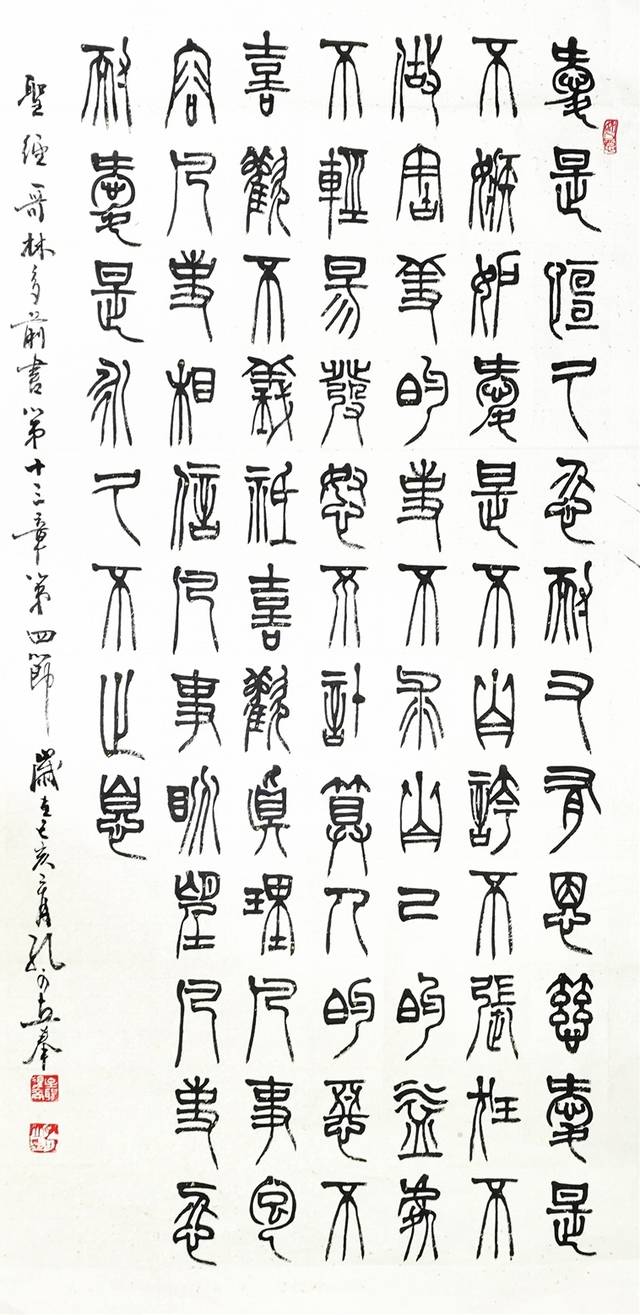 愛是恆久忍耐又有恩慈愛是
不嫉妒愛是不自誇不張狂不
做害羞的事不求自己的益處
不輕易發怒不計算人的惡不
喜歡不義祇喜歡真理凡事包
容凡事相信凡事盼望凡事忍
耐愛是永久不止息
聖經哥林多前書第十三章第四節 歲在己亥